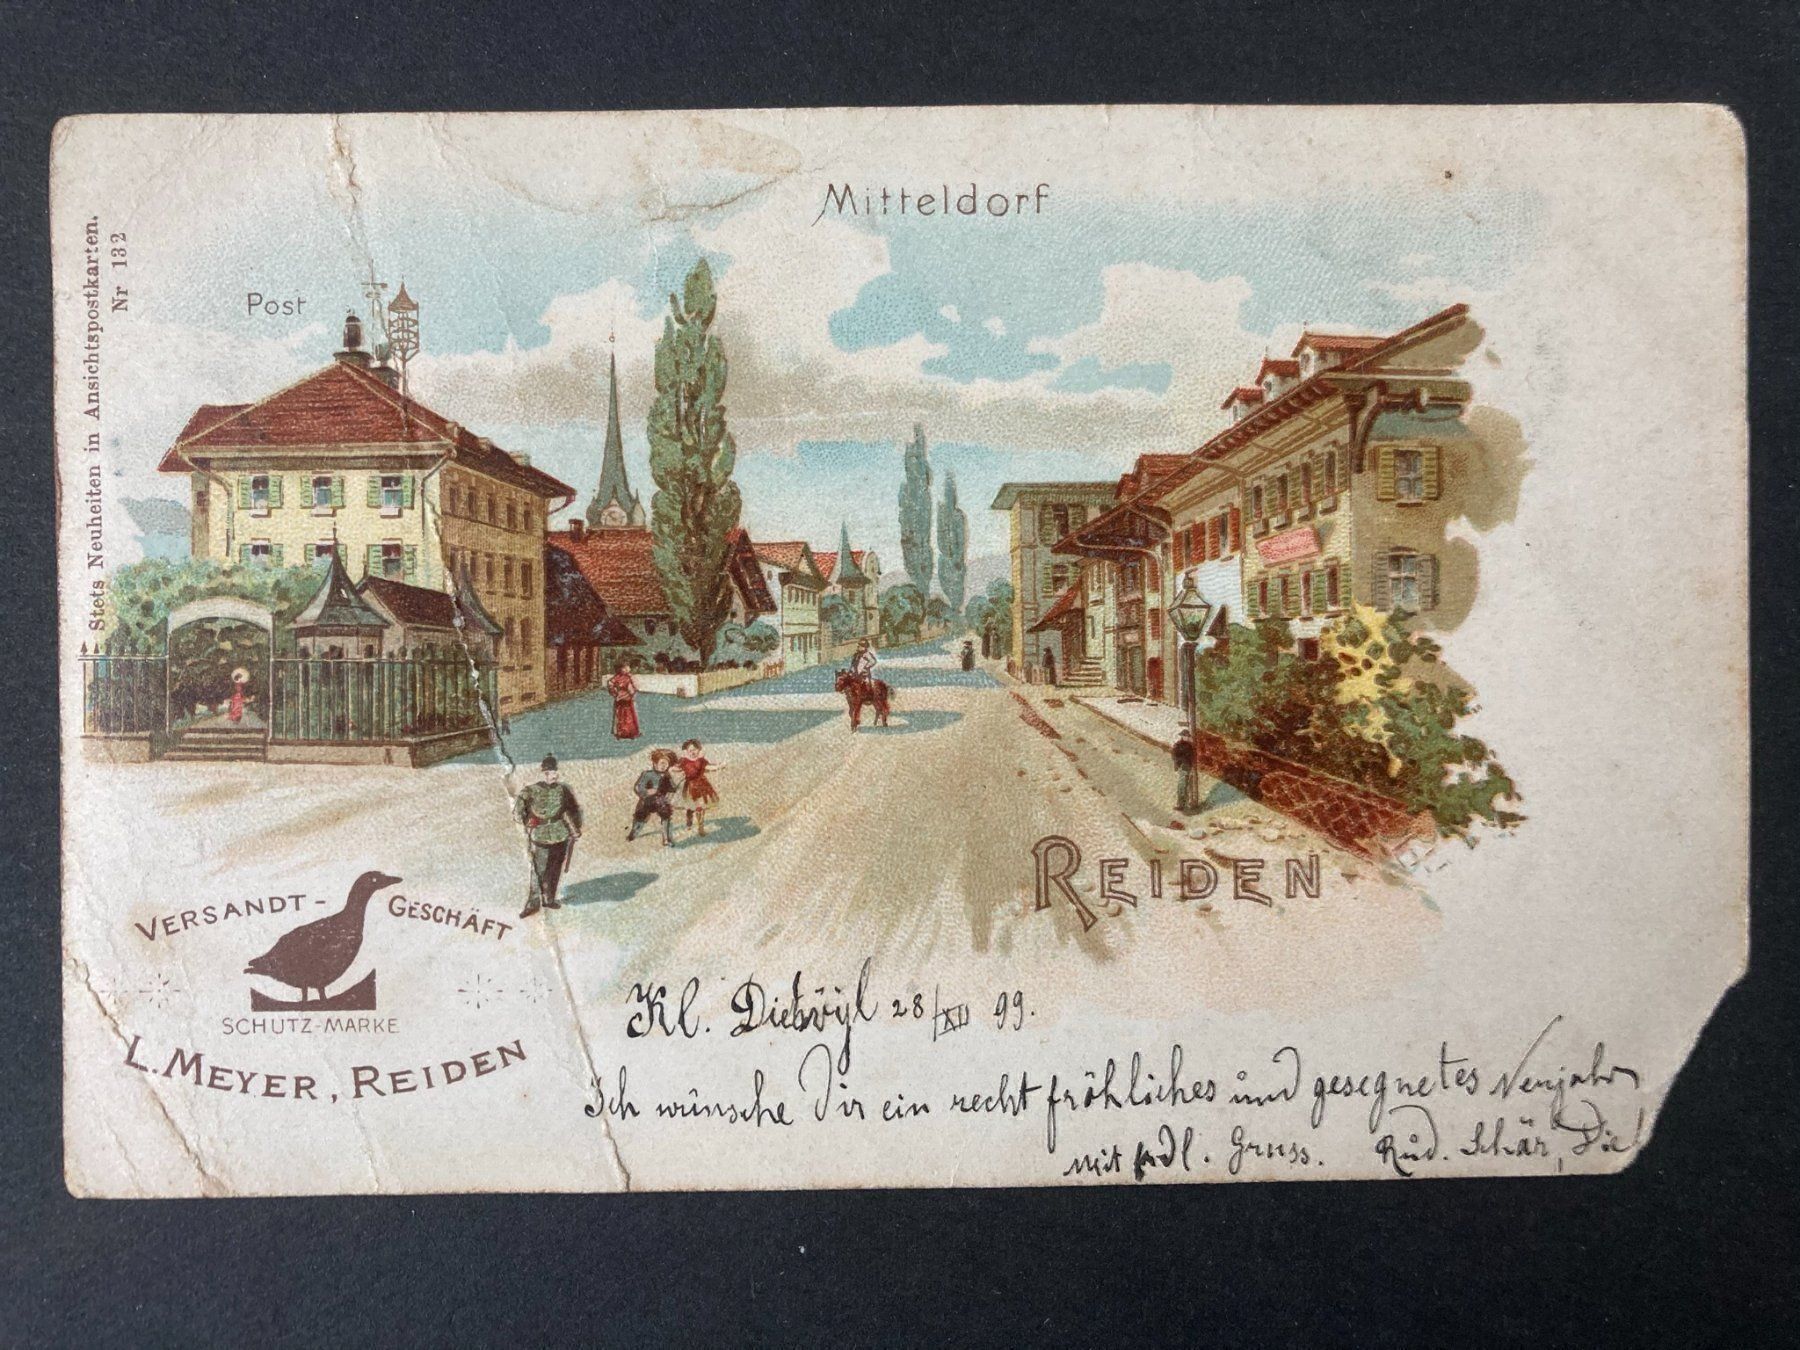 Mitteldorf
Stets Neuheiten in Ansichtspostkarten.
Nr 132
Post
REIDEN
VERSANDT-GESCHÄFT
SCHUTZ-MARKE
L. MEYER, REIDEN
Kl. Dietwyl 28/XII 99.
Ich wünsche Dir ein recht fröhliches und gesegnetes Neujahr
mit frdl. Gruss. Rud. Schär,